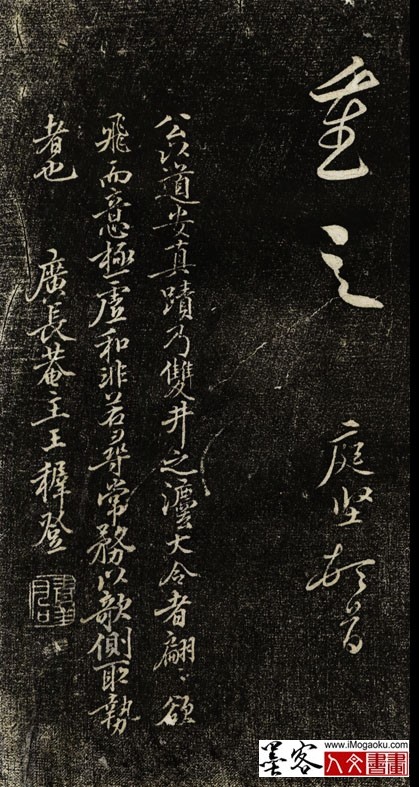 重之
庭坚頓首
公以道安真蹟乃雙井之灋大令者翩〻欲
飛而意極虛和非若尋常務以欹側取執
者也 廣長菴主王穉登
墨客
www.iMogaoku.com
人文書畫